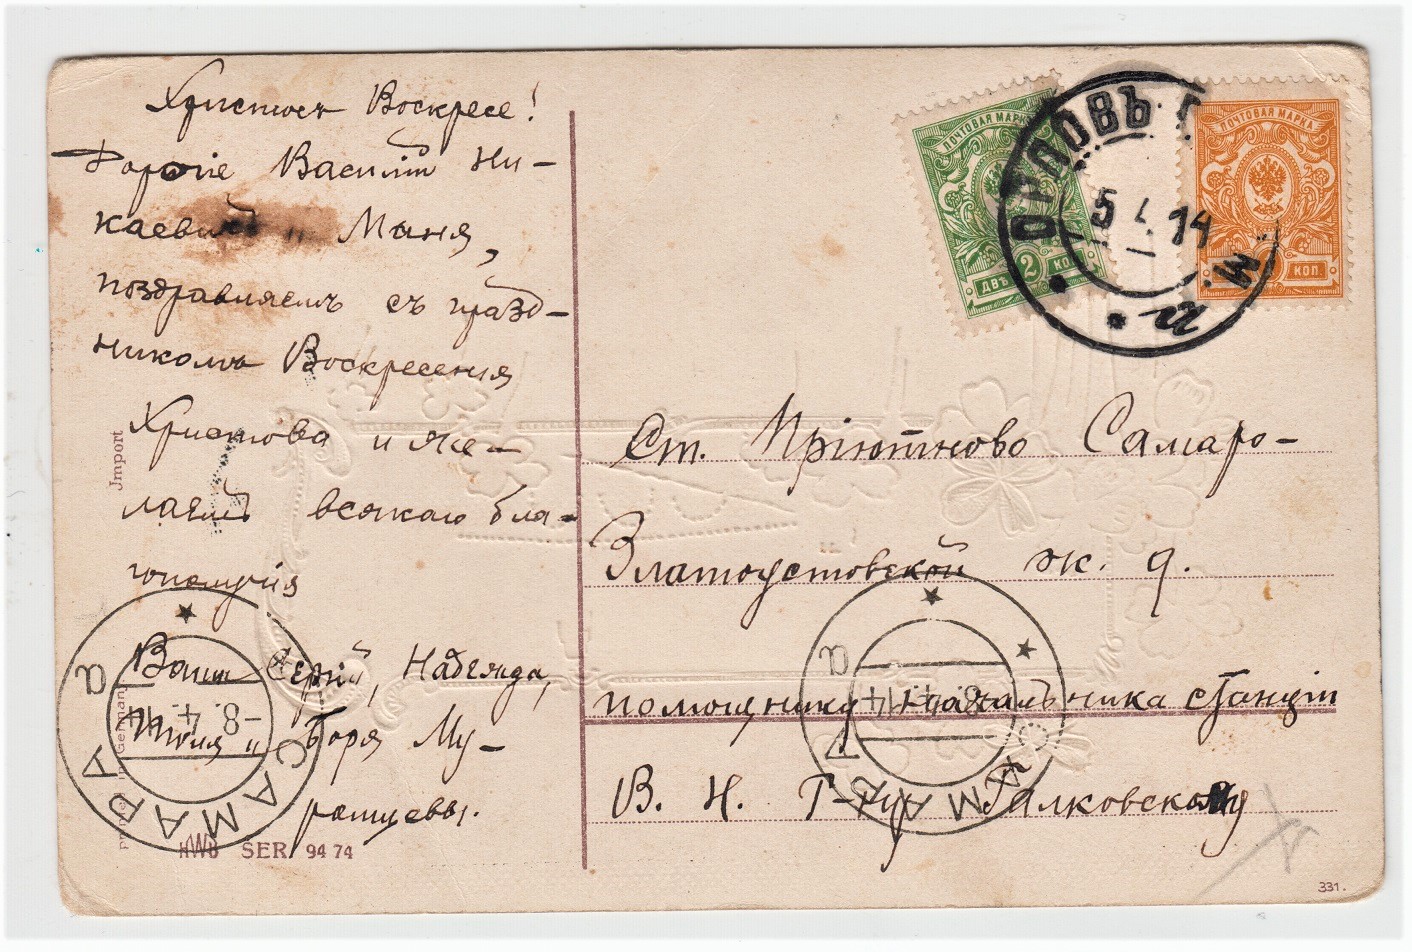 Христосъ Воскресе!
Дорогіе Василій Ни-
каевичъ и Маня,
поздравляемъ съ празд-
никомъ Воскресенія
Христова и же-
лаемъ всякаго бла-
гополучія
Ваши Сергій, Надежда,
Толя и Боря Му-
ратцевы.
ПОЧТОВАЯ МАРКА
ДВѢ 2 КОП
ПОЧТОВАЯ МАРКА
КОП
5 4 14
Ст. Пріютново Самаро-
Златоустовской ж. д.
помощнику начальника станціи
В. Н. Г-ну Галковскому
САМАРА
8.4.14
САМАРА
8.4.14
Jmport
Printed in Germany
HWB SER 9474
331.